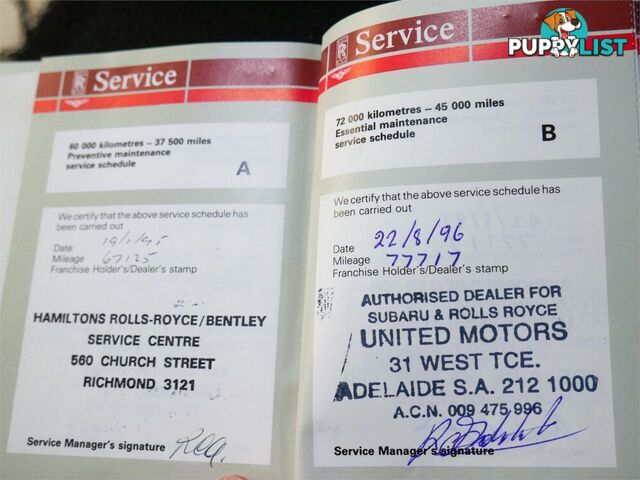 PUPPYLIST
Service
60 000 kilometres – 37 500 miles
Preventive maintenance
service schedule
A
We certify that the above service schedule has
been carried out
Date 19/1/95
Mileage 67125
Franchise Holder's/Dealer's stamp
HAMILTONS ROLLS-ROYCE/BENTLEY
SERVICE CENTRE
560 CHURCH STREET
RICHMOND 3121
Service Manager's signature
Service
72 000 kilometres – 45 000 miles
Essential maintenance
service schedule
B
We certify that the above service schedule has
been carried out
Date 22/8/96
Mileage 77717
Franchise Holder's/Dealer's stamp
AUTHORISED DEALER FOR
SUBARU & ROLLS ROYCE
UNITED MOTORS
31 WEST TCE.
ADELAIDE S.A. 212 1000
A.C.N. 009 475 996
Service Manager's signature